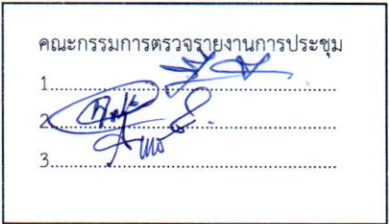 คณะกรรมการตรวจรายงานการประชุม
1.....................................................
2.....................................................
3.....................................................